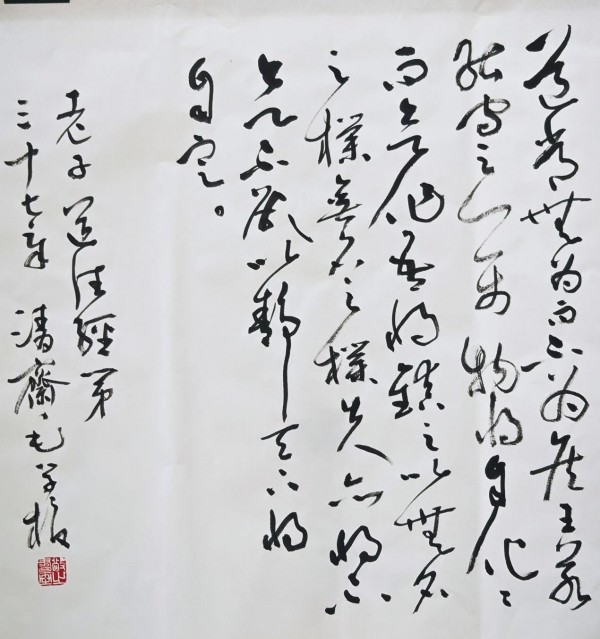 道常無为而不为侯王若
能守之万物将自化〻
而欲作吾将鎮之以無名
之樸無名之樸夫亦将不
欲不欲以靜天下将
自定。
老子道德經第
三十七章 清齋毛